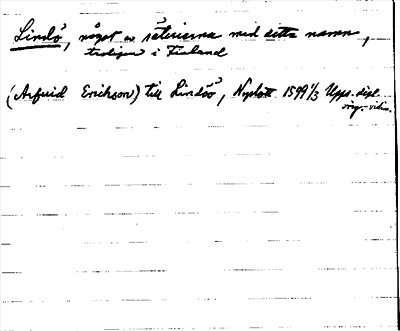 Lindö, något av säterierna med detta namn,
troligen i Finland
(Arfuid Erichson) till Lindöö, Nyslott 1599 1/3 Upps. dipl.